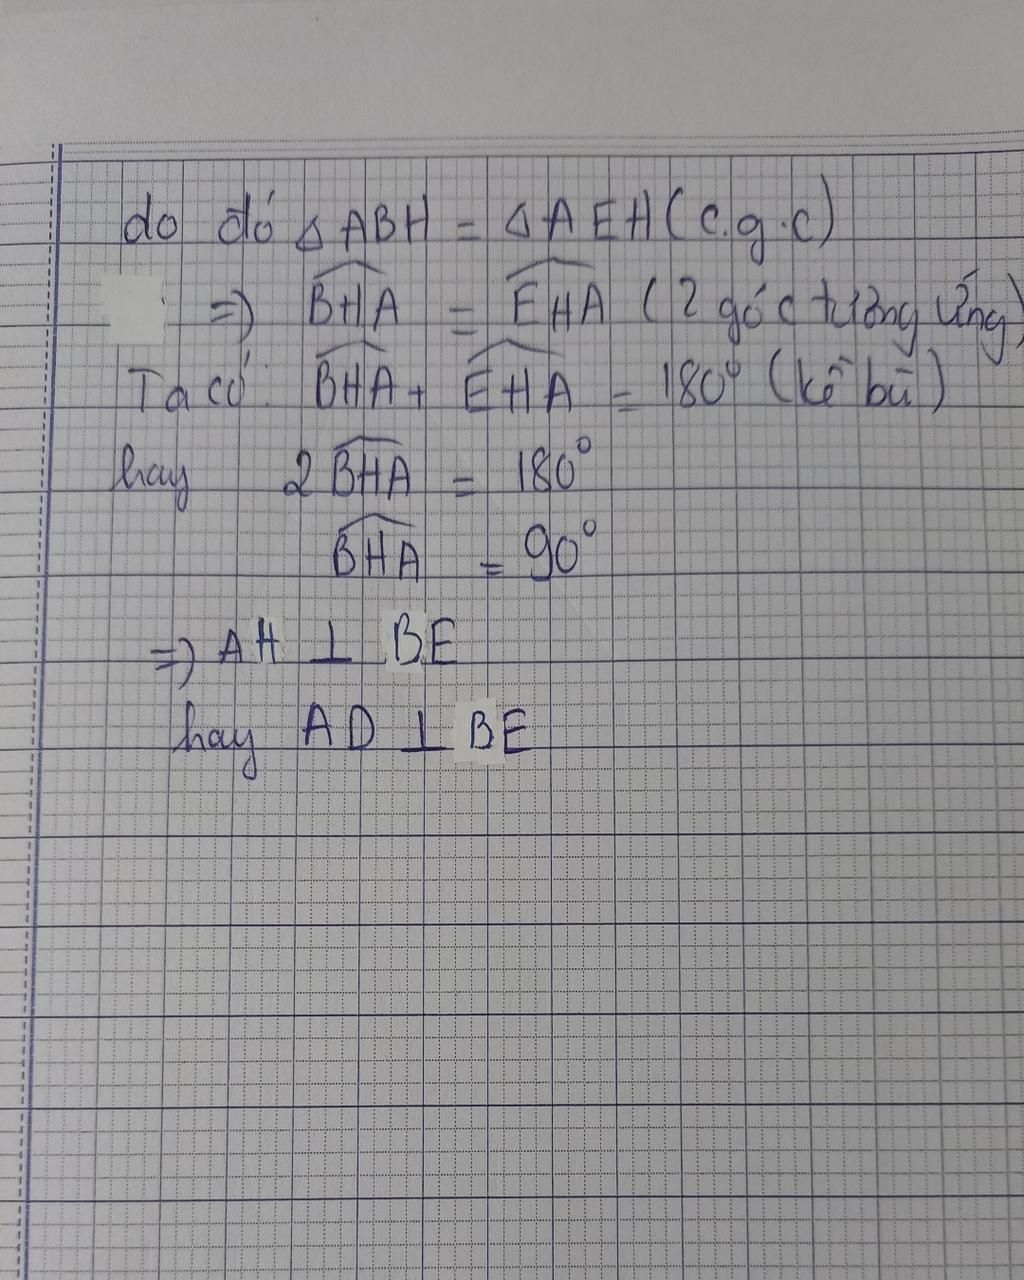 do đó △ABH = △AEH (c.g.c)
=> \widehat{BHA} = \widehat{EHA} (2 góc tương ứng)
Ta có: \widehat{BHA} + \widehat{EHA} = 180° (kề bù)
hay 2\widehat{BHA} = 180°
\widehat{BHA} = 90°
=> AH ⊥ BE
hay AD ⊥ BE